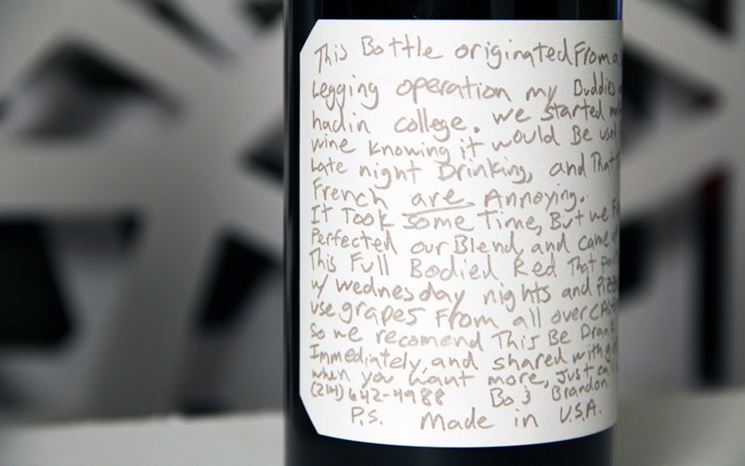 This Bottle originated From a
Legging operation my Buddies
had in college. we started
wine knowing it would Be used
Late night Drinking, and That
French are Annoying.
It Took some Time, But we
Perfected our Blend and came
This Full Bodied Red That
w/ wednesday nights and Pizza
use grapes From all over
so we recomend This Be Drank
Immediately, and shared with
when you want more, Just
(214) 642-4988 Bo & Brandon
P.S. Made in U.S.A.